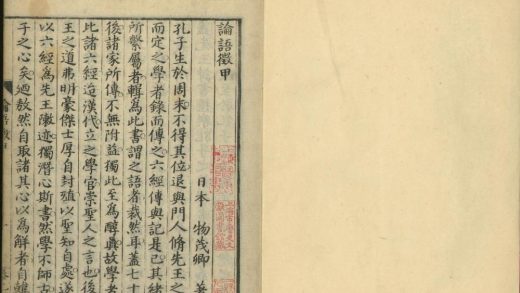 論語徵甲
日本 物茂卿 著
孔子生於周末不得其位退與門人脩先王之
而定之學者錄而傳之六經傳與記是已其緒
所繫屬者輯為此書謂之語者然耳蓋七十
後諸家所傳不無附益獨此至為醇真故學者
比諸六經迨漢代立之學官崇聖人之言也後
王之道弗明豪傑士厚自封殖以聖知自處遂
以六經為先王陳迹獨潛心斯書然學不師古
子之心矣迺敖然自取諸其心以為解者自韓